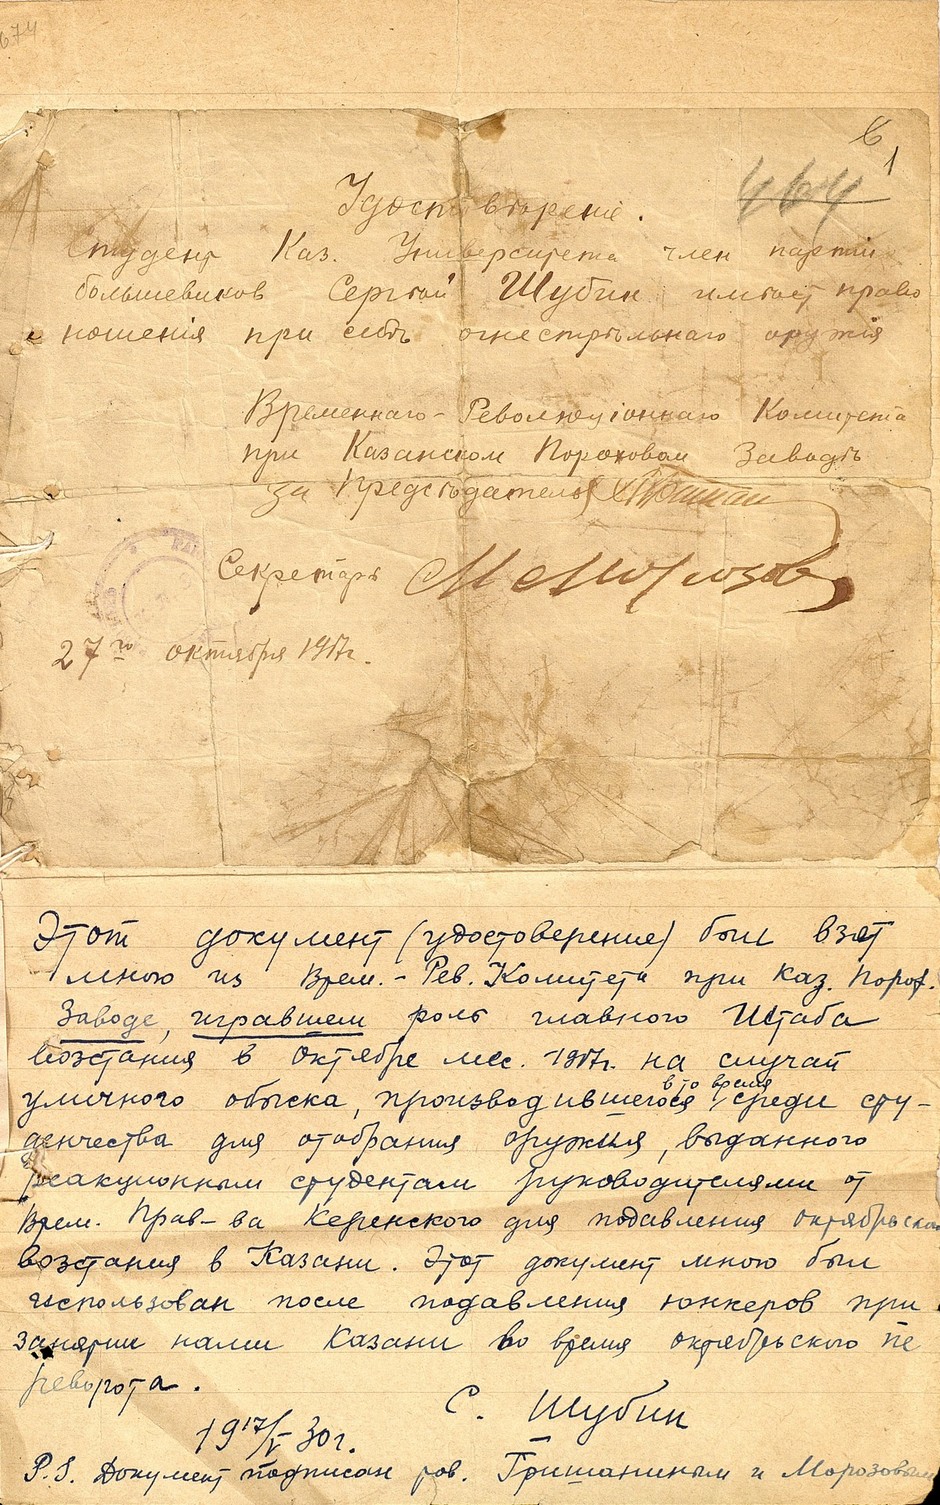 674
6
1
464
Удостоверенiе.
Студент Каз. Университета член партiи
большевиков Сергѣй Шубин имѣет право
ношенiя при себѣ огнестрѣльнаго оружiя
Временнаго-Революцiоннаго Комитета
при Казанском Пороховом Заводѣ
за Предсѣдателя
Секретарь М Морозов
27го октября 1917г.
Этот документ (удостоверение) был взят
мною из Врем.-Рев. Комитета при Каз. Порох.
Заводе, игравшем роль главного Штаба
возстания в Октябре мес. 1917г. на случай
уличного обыска, производившегося в то время среди сту-
денчества для отобрания оружия, выданного
реакционным студентам руководителями от
Врем. Прав-ва Керенского для подавления октябрьско
возстания в Казани. Этот документ мною был
использован после подавления юнкеров при
занятии нами Казани во время октябрьского пе
реворота.
С. Шубин
1917/V 30г.
P.S. Документ подписан тов. Гришаниным и Морозовым